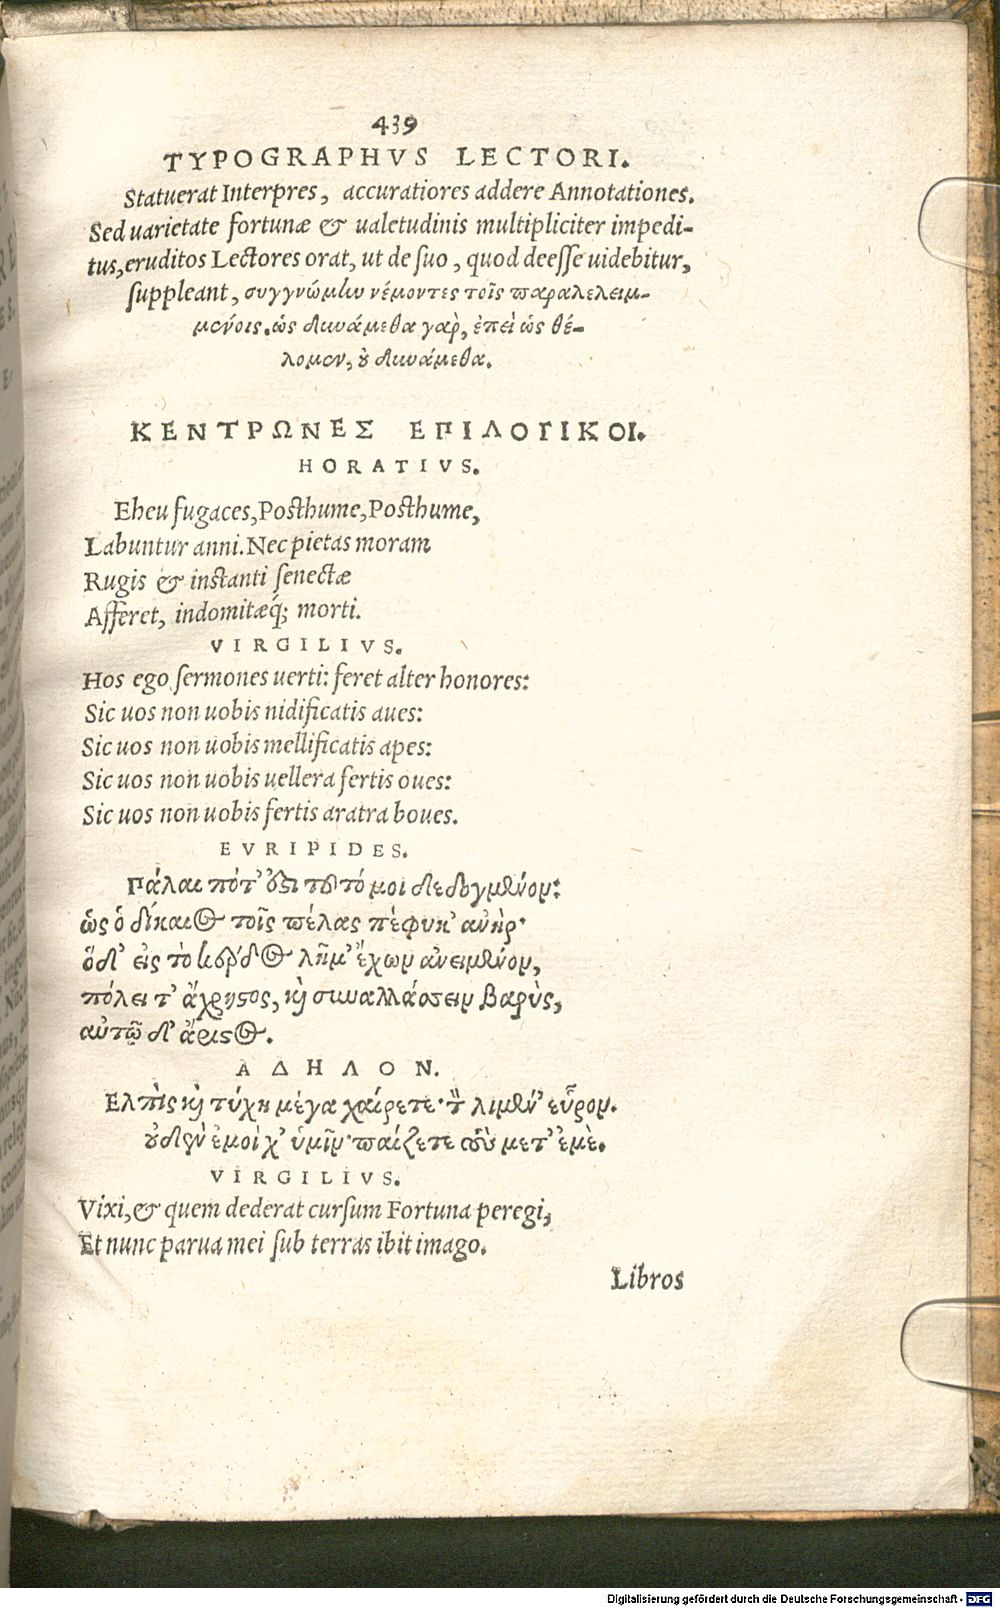 439
TYPOGRAPHVS LECTORI.
Statuerat Interpres, accuratiores addere Annotationes.
Sed uarietate fortunæ & ualetudinis multipliciter impedi-
tus, eruditos Lectores orat, ut de suo, quod deesse uidebitur,
suppleant, συγγνώμην νέμοντες τοῖς παραλελειμ-
μένοις. ὡς δυνάμεθα γὰρ, ἐπεὶ ὡς θέ-
λομεν, οὐ δυνάμεθα.
ΚΕΝΤΡΩΝΕΣ ΕΠΙΛΟΓΙΚΟΙ.
HORATIVS.
Eheu fugaces, Posthume, Posthume,
Labuntur anni. Nec pietas moram
Rugis & instanti senectæ
Afferet, indomitæq́; morti.
VIRGILIVS.
Hos ego sermones uerti: feret alter honores:
Sic uos non uobis nidificatis aues:
Sic uos non uobis mellificatis apes:
Sic uos non uobis uellera fertis oues:
Sic uos non uobis fertis aratra boues.
EVRIPIDES.
Πάλαι πότ' ὅξι τοῦτό μοι δεδογμένον:
ὡς ὁ δίκαιος τοῖς πέλας πέφυκ' ἀνὴρ·
ὅδ' εἰς τὸ κέρδος λῆμ' ἔχων ἀνειμένον,
πόλει τ' ἄχρηστος, καὶ συναλλάσσειν βαρὺς,
αὐτῷ δ' ἄριστος.
ΑΔΗΛΟΝ.
Ελπὶς καὶ τύχη μέγα χαίρετε· τὸν λιμέν' εὗρον.
οὐδὲν ἐμοί χ' ὑμῖν· παίζετε σὺν μετ' ἐμὲ.
VIRGILIVS.
Vixi, & quem dederat cursum Fortuna peregi,
Et nunc parua mei sub terras ibit imago.
Libros
Digitalisierung gefördert durch die Deutsche Forschungsgemeinschaft - DFG